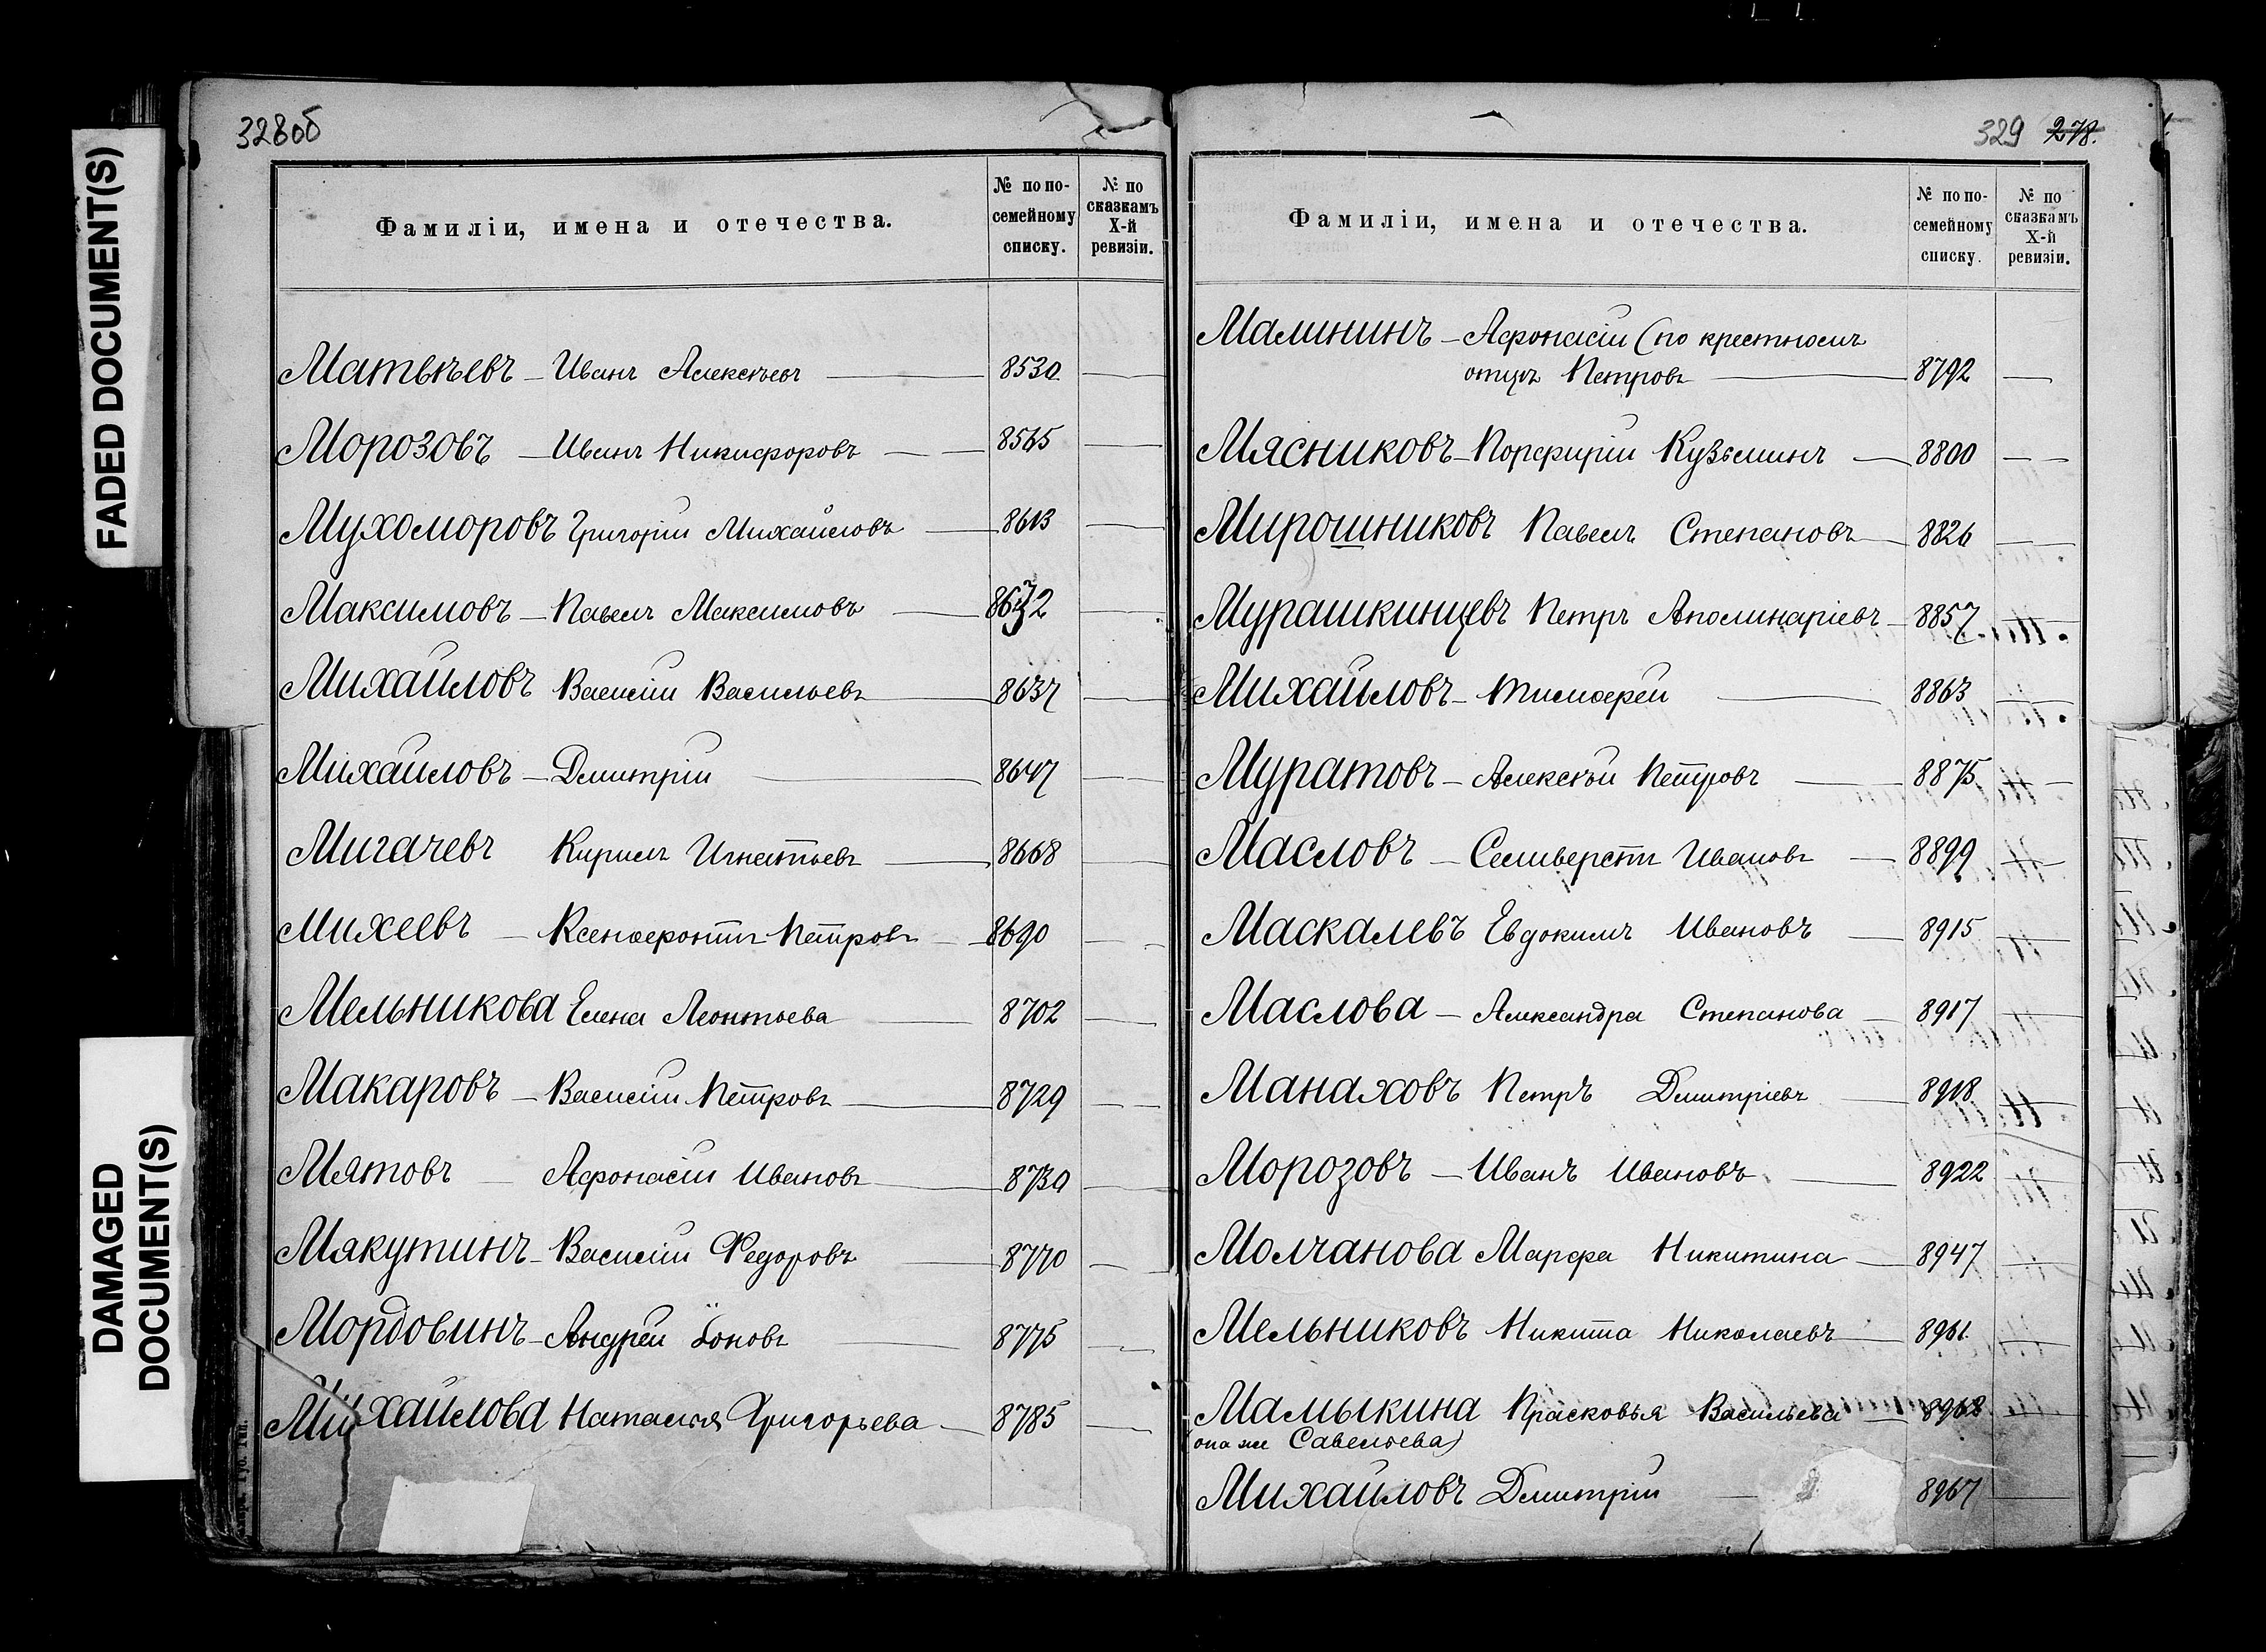 FADED DOCUMENT(S)
DAMAGED
DOCUMENT(S)
328об
Фамиліи, имена и отечества.
№ по по-
семейному
списку.
№ по
сказкамъ
X-й
ревизіи.
Матвѣевъ — Иванъ Алексѣевъ — 8530 —
Морозовъ — Иванъ Никифоровъ — 8565 —
Мухоморовъ Григорій Михайловъ — 8613 —
Максимовъ — Павелъ Максимовъ — 8632 —
Михайловъ Василій Васильевъ — 8637 —
Михайловъ — Дмитрій — 8647 —
Мигачевъ Кирилъ Игнатьевъ — 8668 —
Михеевъ — Ксенофонтъ Петровъ — 8690 —
Мельникова Елена Леонтьева — 8702 —
Макаровъ — Василій Петровъ — 8729 —
Мятовъ — Афонасій Ивановъ — 8730 —
Мякутинъ — Василій Федоровъ — 8770 —
Мордовинъ — Андрей Іоновъ — 8775 —
Михайлова Наталья Григорьева — 8785 —
329 278.
Фамиліи, имена и отечества.
№ по по-
семейному
списку.
№ по
сказкамъ
X-й
ревизіи.
Малининъ — Афонасій (по крестномъ
отцѣ Петровъ — 8792 —
Мясниковъ — Порфирій Кузьминъ — 8800 —
Мирошниковъ Павелъ Степановъ — 8826 —
Мурашкинцевъ Петръ Аполинаріевъ — 8857 —
Михайловъ — Тимофей — 8863 —
Муратовъ — Алексѣй Петровъ — 8875 —
Масловъ — Селиверстъ Ивановъ — 8899 —
Маскалевъ Евдокимъ Ивановъ — 8915 —
Маслова — Александра Степанова — 8917 —
Манаховъ Петръ Дмитріевъ — 8918 —
Морозовъ — Иванъ Ивановъ — 8922 —
Молчанова Марфа Никитина — 8947 —
Мельниковъ Никита Николаевъ — 8961 —
Мамыкина Прасковья Васильева — 8968 —
(она же Савельева)
Михайловъ Дмитрій — 8967 —